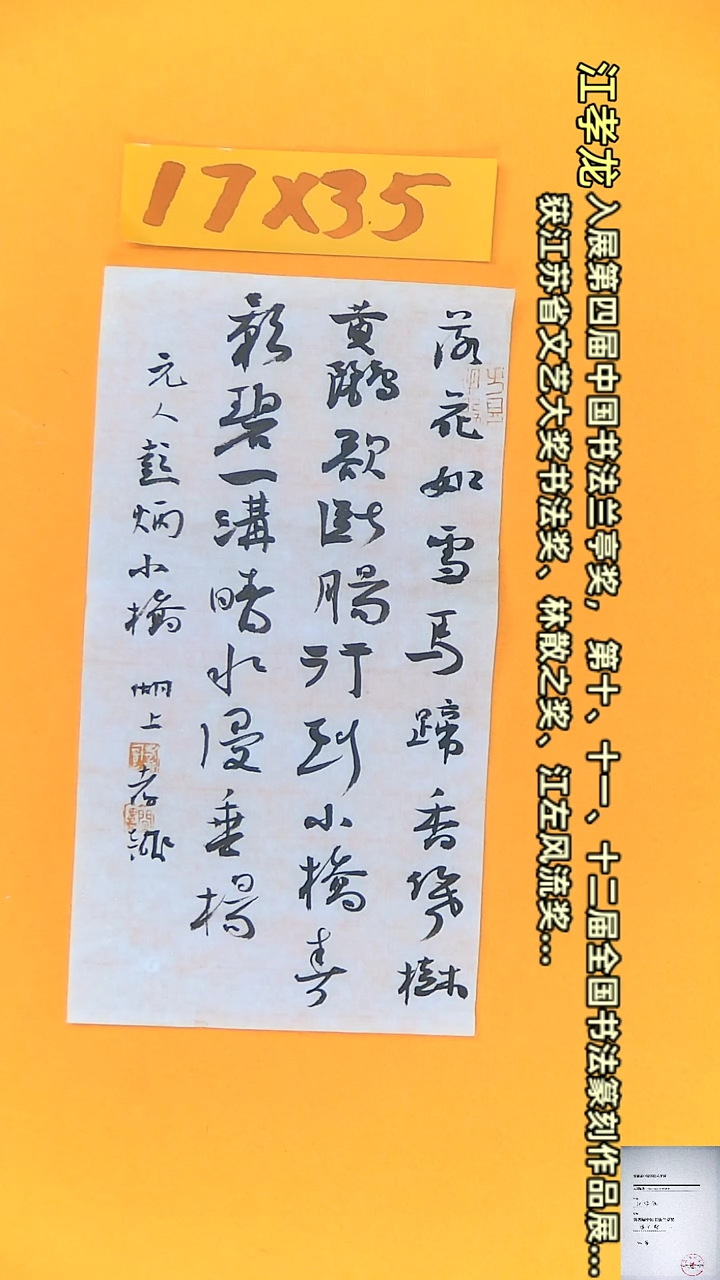 17X35
江孝龙
入展第四届中国书法兰亭奖,第十、十一、十二届全国书法篆刻作品展...
获江苏省文艺大奖书法奖、林散之奖、江左风流奖...
落花如雪馬蹄香幾樹
黄鸝欲斷腸行到小橋春
影碧一溝晴水浸垂楊
元人彭炳小橋 湖上孝龍